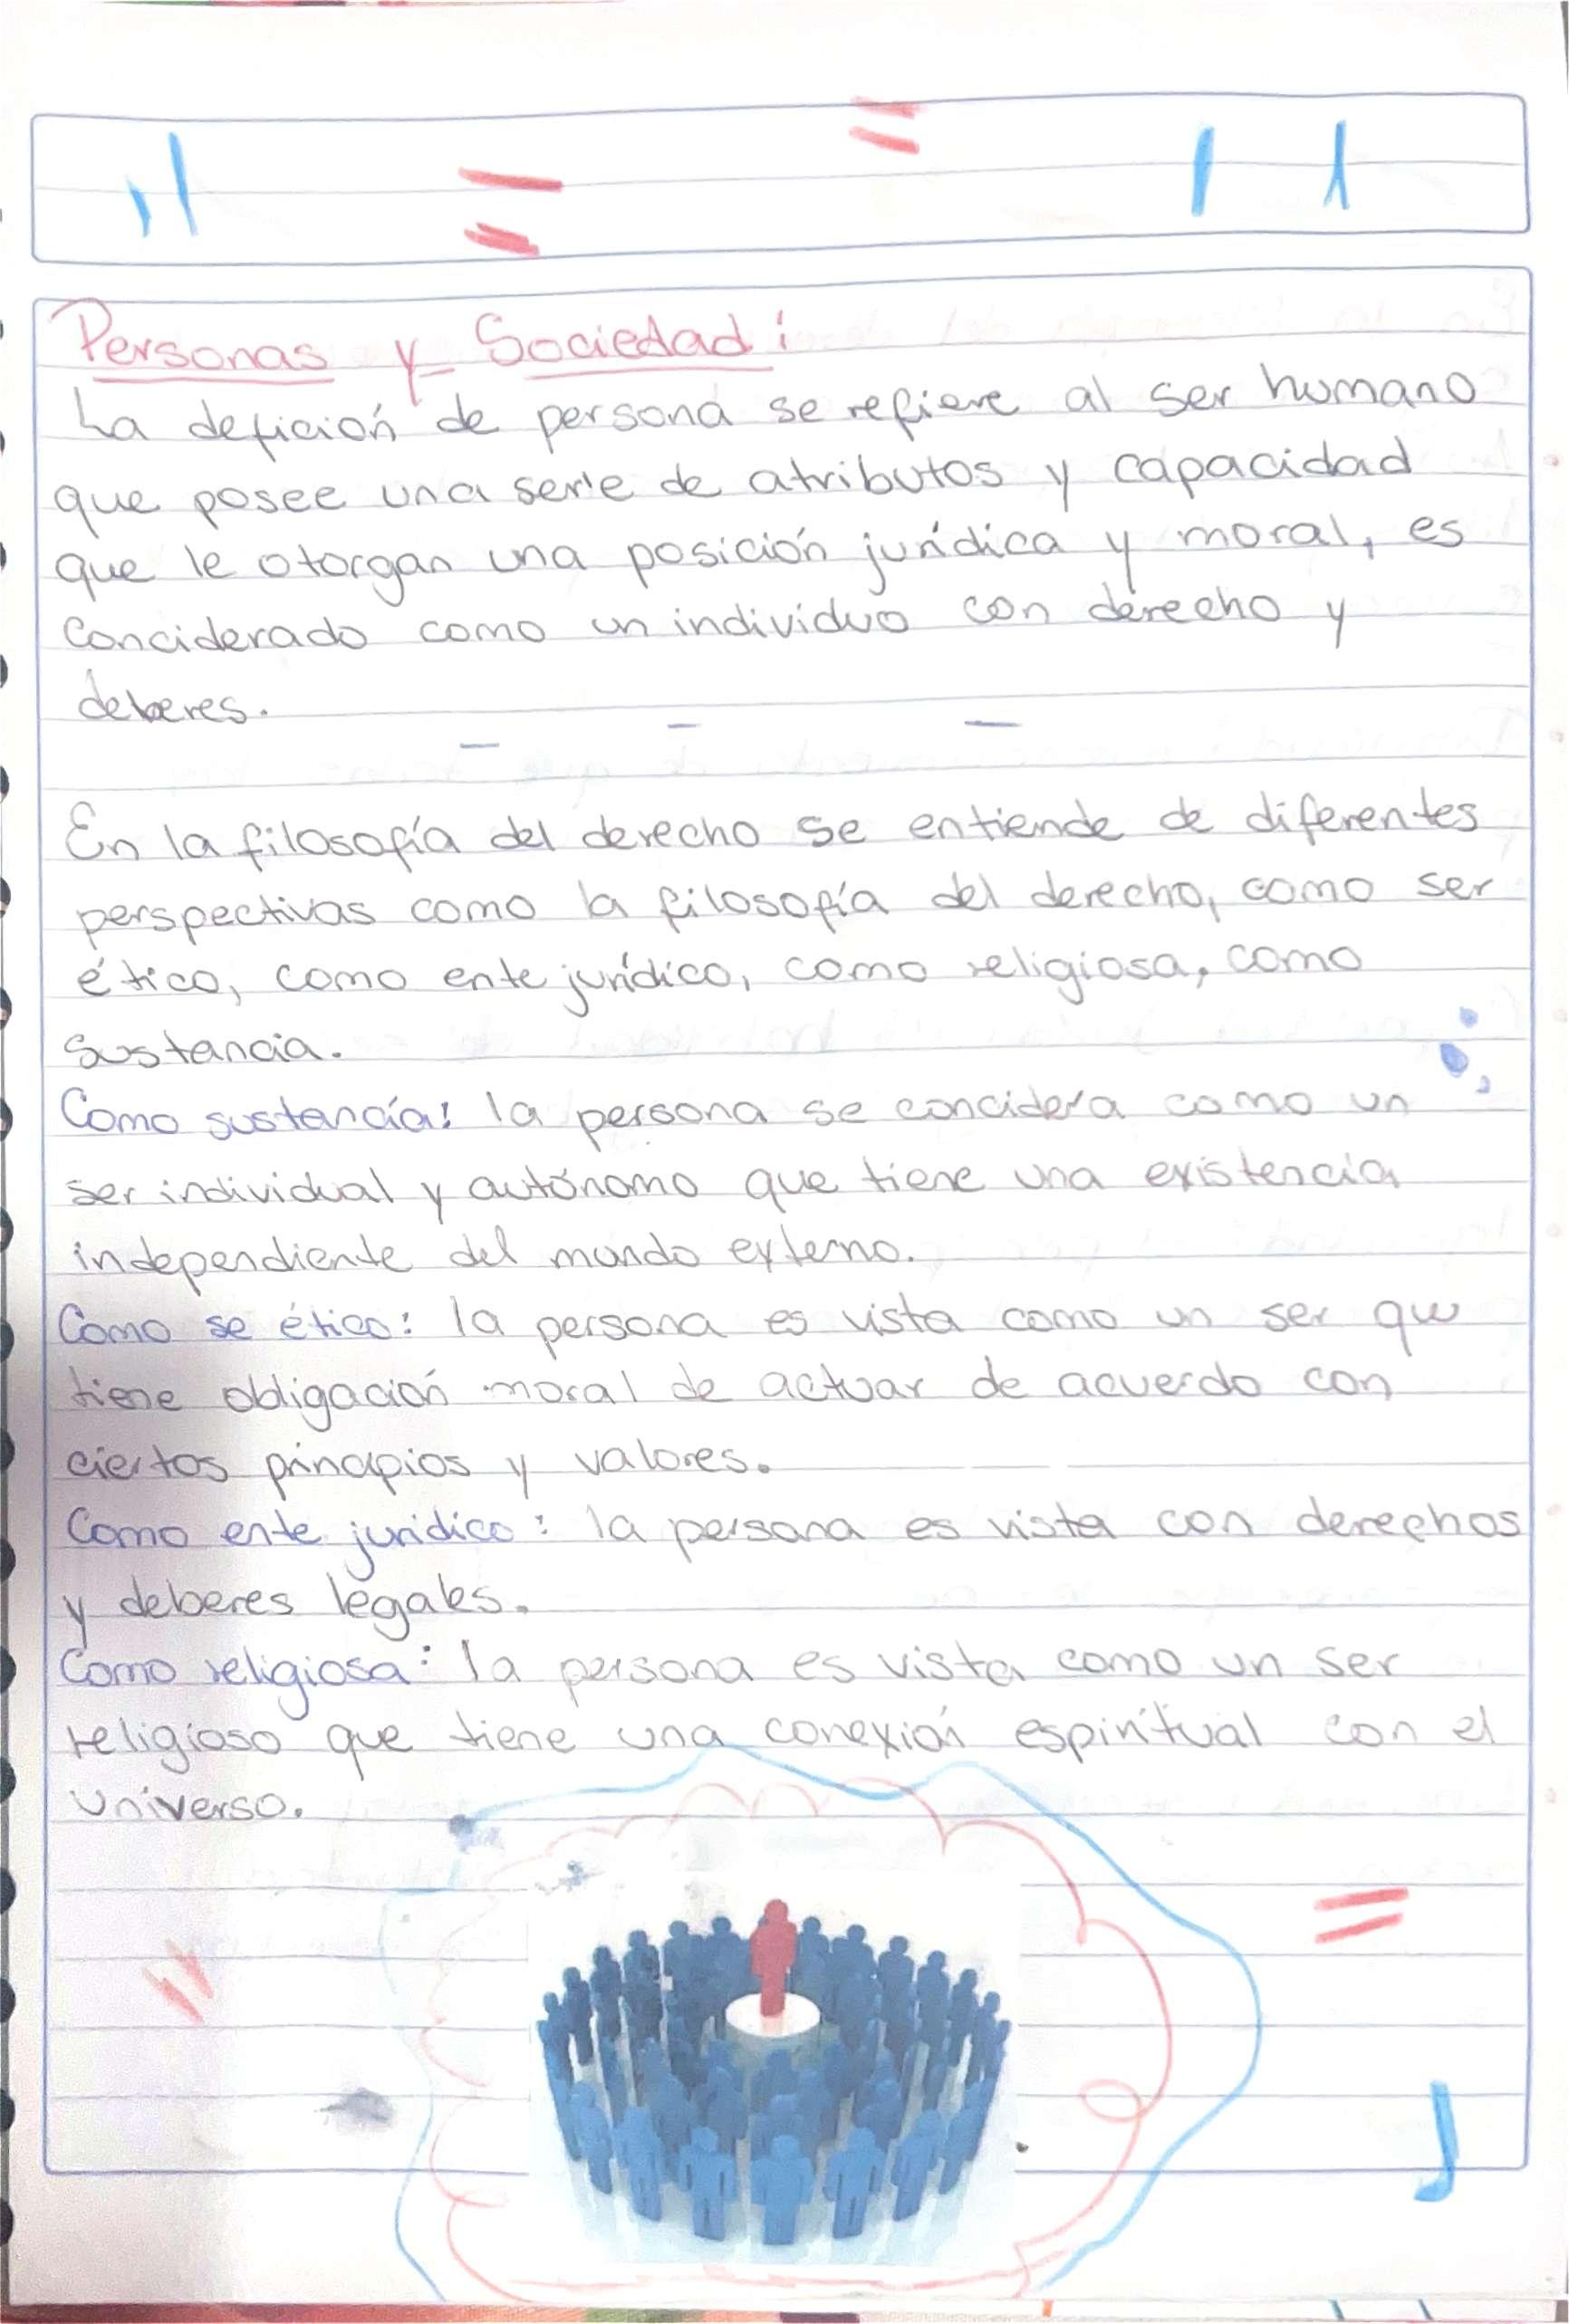 Personas y Sociedad:
La defición de persona se refiere al ser humano
que posee una serie de atributos y capacidad
que le otorgan una posición jurídica y moral, es
conciderado como un individuo con derecho y
deberes.
En la filosofía del derecho se entiende de diferentes
perspectivas como la filosofía del derecho, como ser
ético, como ente jurídico, como religiosa, como
sustancia.
Como sustancía: la persona se concidera como un
ser individual y autónomo que tiene una existencia
independiente del mundo externo.
Como se ético: la persona es vista como un ser que
tiene obligación moral de actuar de acuerdo con
ciertos principios y valores.
Como ente jurídico: la persona es vista con derechos
y deberes legales.
Como religiosa: la persona es vista como un ser
religioso que tiene una conexión espiritual con el
universo.